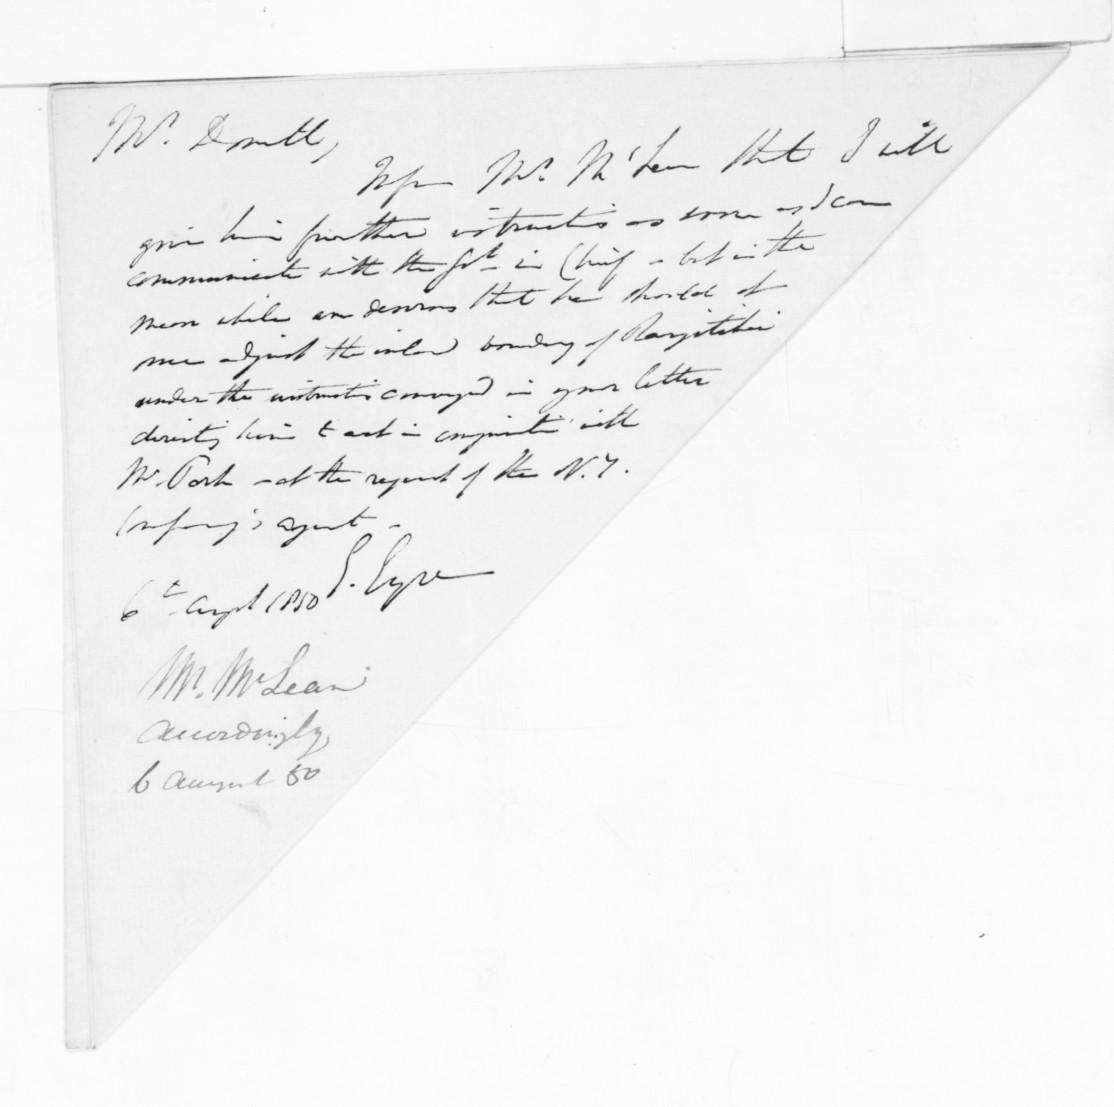 Mr. Domett,
Inform Mr. McLean that I will
give him further instructions as soon as I can
communicate with the Govr in Chief - but in the
mean while am desirous that he should at
once adjust the inland boundary of Rangitikei
under the instructions conveyed in your letter
directing him to act in conjunction with
Mr. Park - at the request of the N.Z.
Company's agent -
E. Eyre
6th August 1850
Mr. McLean
accordingly,
6 August 50